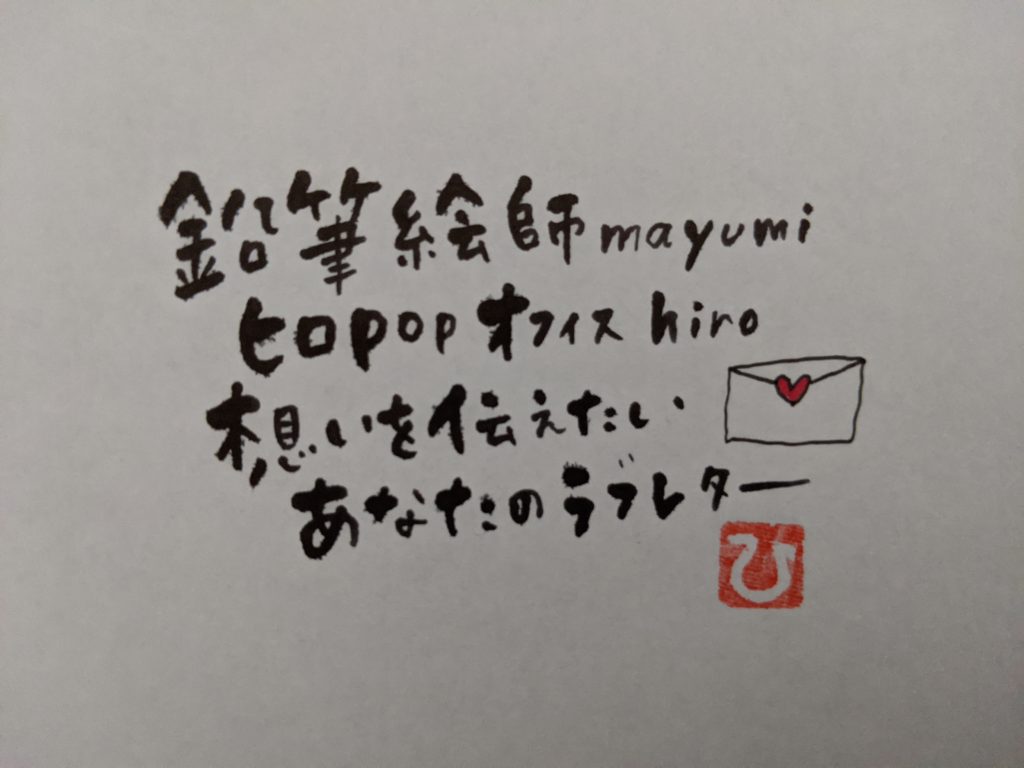 鉛筆絵師mayumi
ヒロpopオフィスhiro
想いを伝えたい
あなたのラブレター
ひ